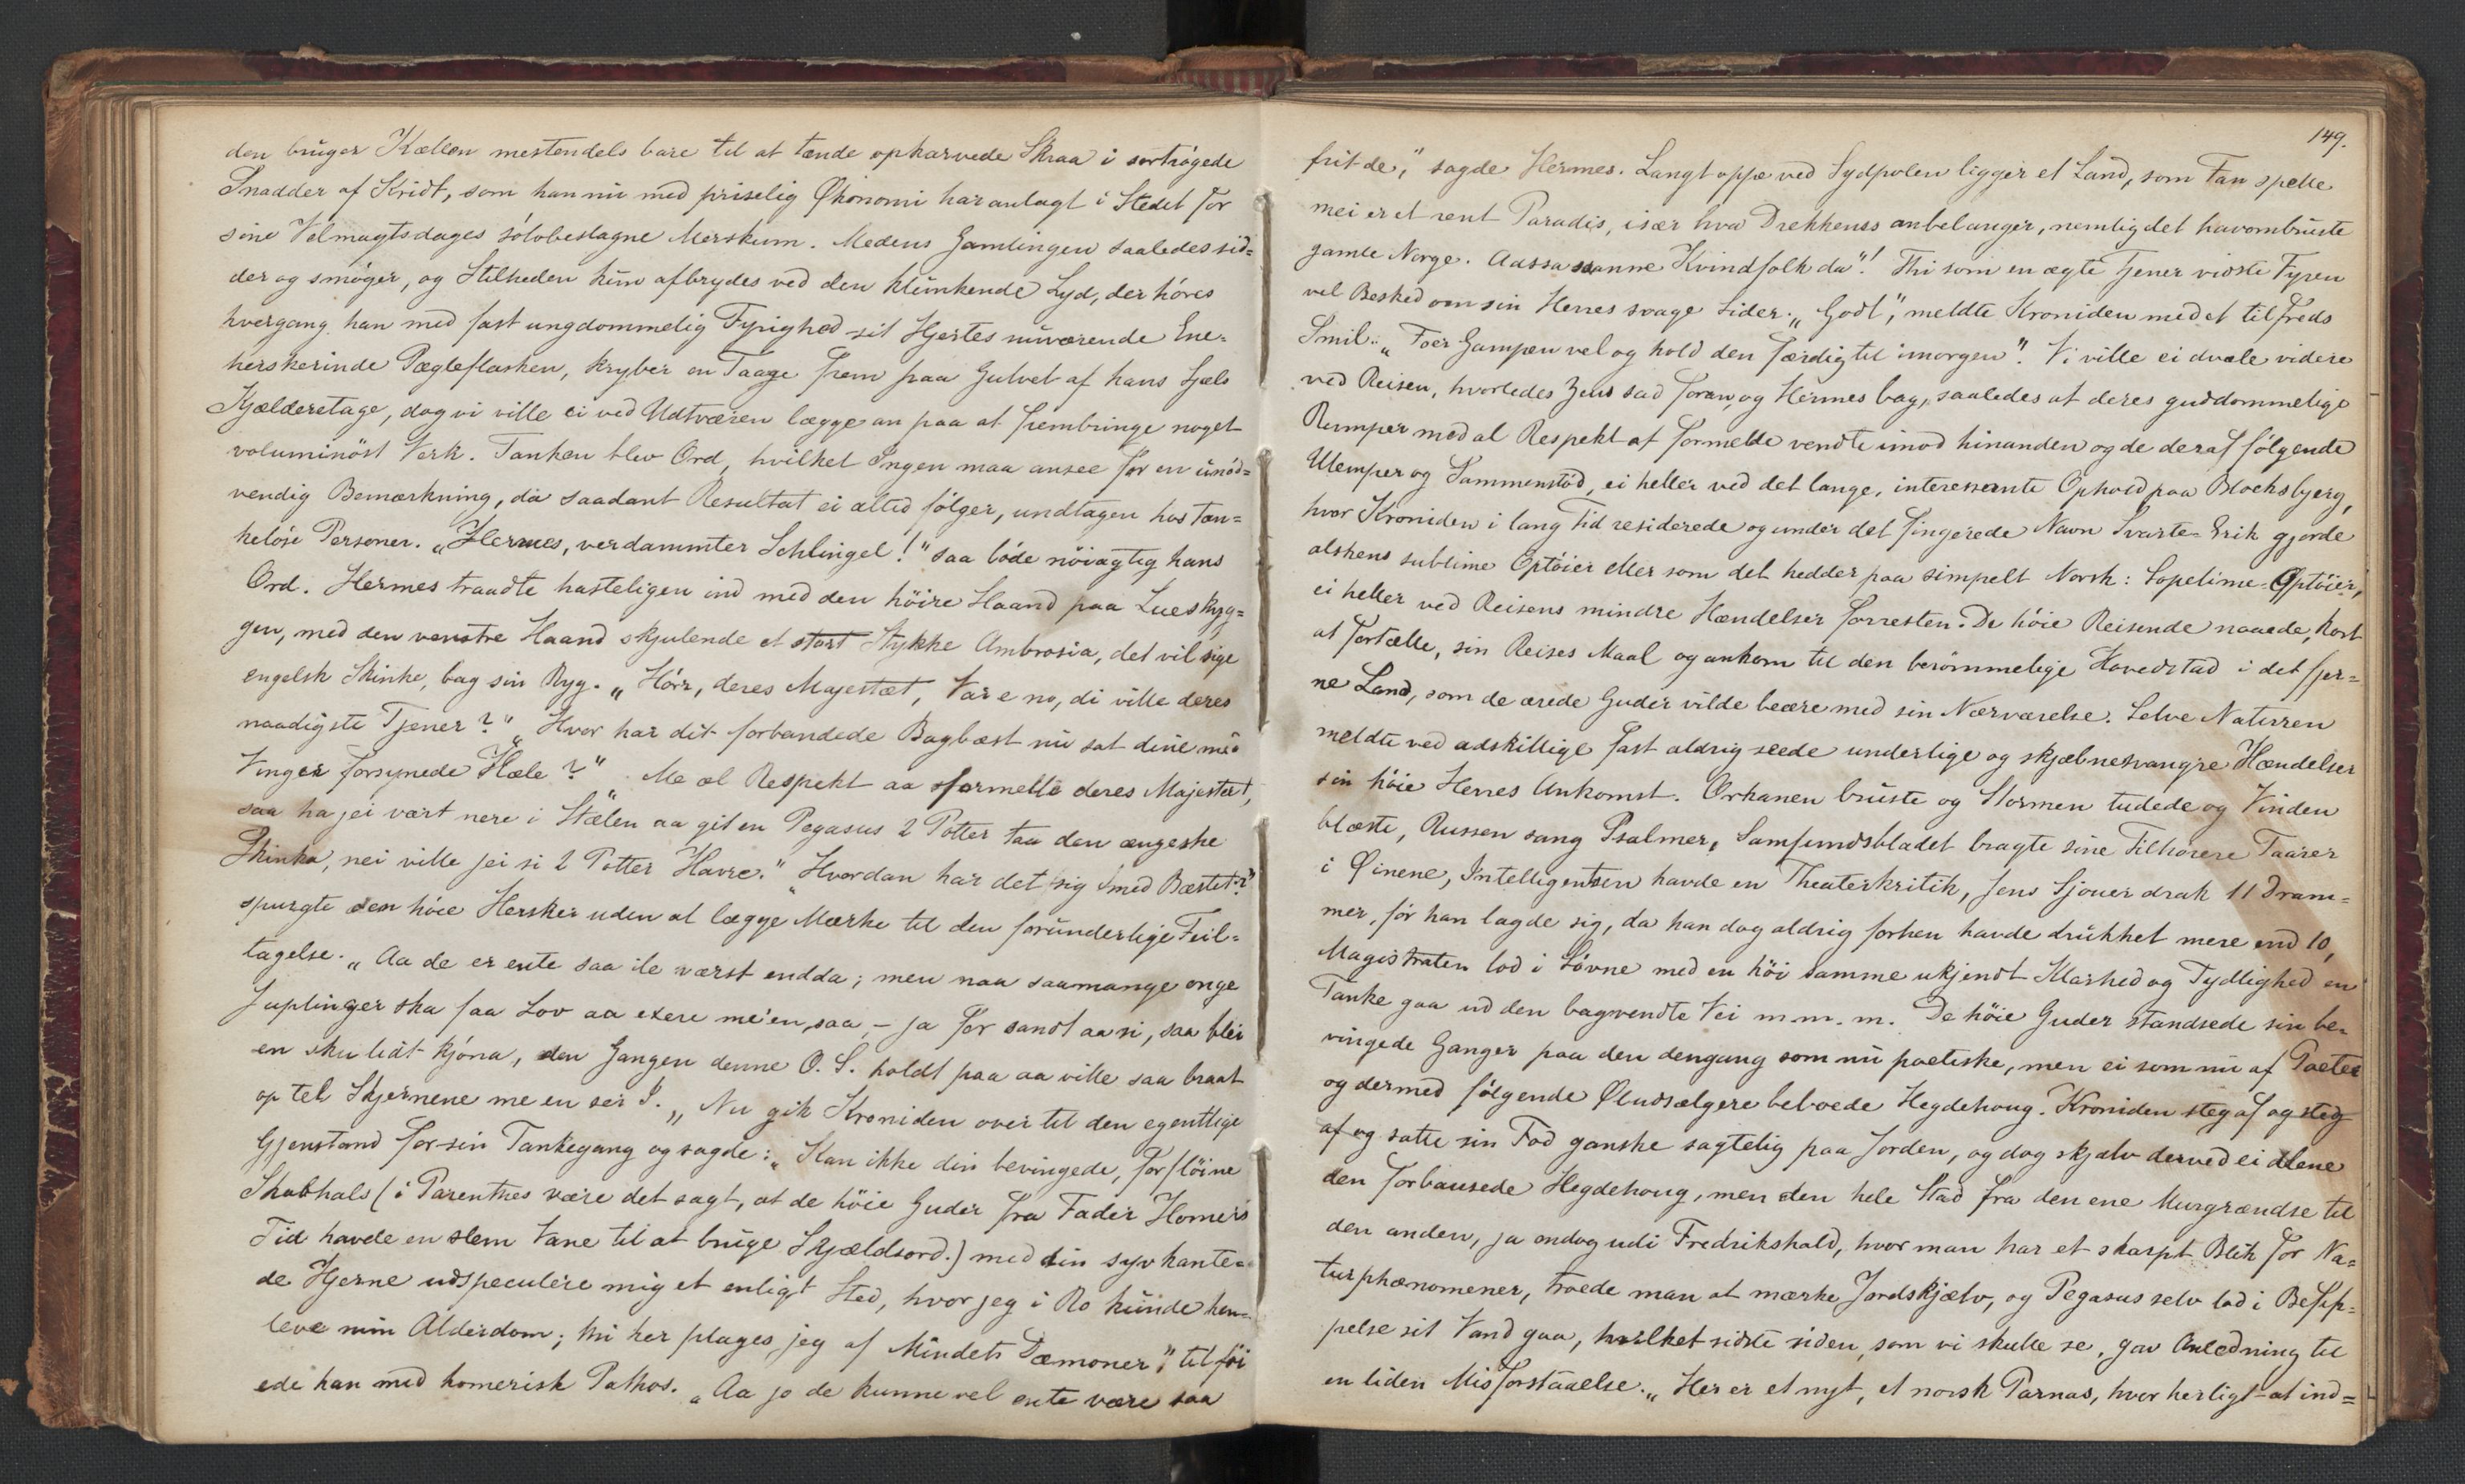 den bruger Kællen mestendels bare til at tænde opkarvede Skraa i sortrøgede
Snadder af Kridt, som han nu med priselig Økonomi har anlagt i Stedet for
sine Velmagtsdages sólvbeslagne Merskum. Medens Gamlingen saaledes sid=
der og smøger, og Stilheden kun afbrydes ved den klunkende Lyd, der høres
hvergang han med fast ungdommelig Fyrighed sit Hjertes nuværende Ene=
herskerinde Pægleflasken, kryber en Taage frem paa Gulvet af hans Sjæls
Kjælderetage, dog vi ville ei ved Udtværen lægge an paa at frembringe noget
voluminöst Verk. Tanken blev Ord, hvilket Ingen maa ansee for en unód=
vendig Bemærkning, da saadant Resultat ei altid følger, undtagen hos tan=
keløse Personer. „Hermes, verdammter Schlingel!" saa løde nöiagtig hans
Ord. Hermes traadte hasteligen ind med den höire Haand paa Lueskyg=
gen, med den venstre Haand skjulende et stort Stykke Ambrosia, det vil sige
engelsk Skinke, bag sin Ryg. „Hörr, deres Majestæt, Var e no, di ville deres
naadigste Tjener?" „Hvor har dit forbandede Bagbæst nu sat dine med
Vinger forsynede Hæle?" „Me al Respekt aa formelle deres Majestæt,
saa ha jei vært nere i Stælen aa git en Pegasus 2 Potter taa den ængeske
Skinka, nei ville jei si 2 Potter Havre." „Hvordan har det sig med Bæstet?"
spurgte den høie Hersker uden at lægge Mærke til den forunderlige Feil=
tagelse. „Aa de er ente saa ile værst endda; men naa saamange onge
Japlinger ska faa Lov aa exere me'en, saa, – ja for sandt aa si, saa blei
en sku lidt kjóna, den Gangen denne O. S. holdt paa aa ville saa braat
op tel Stjernene me en ser I. „Nu gik Kroniden over til den egentlige
Gjenstand for sin Tankegang og sagde: „Kan ikke din bevingede, forflöine
Skabhals (i Parenthes være det sagt, at de höie Guder fra Fader Homers
Tid havde en slem Vane til at bruge Skjældsord.) med din syvkante=
de Hjerne udspeculere mig et enligt Sted, hvor jeg i Ro kunde hen=
leve min Alderdom; thi her plages jeg af Mindets Dæmoner", tilföi
ede han med homerisk Pathos. „Aa jo de kunne vel ente være saa
149.
frit de," sagde Hermes. Langt oppe ved Sydpolen ligger et Land, som Fan spelle
mei er et rent Paradis, især hva Drekkenss anbelanger, nemlig det havombruste
gamle Norge. Aassa sanne Kvindfolk da"! Thi som en ægte Tjener vidste Fyren
vel Besked om sin Herres svage Sider. „Godt," meldte Kroniden med et tilfreds
Smil: „Foer Gampen vel og hold den færdig til imorgen". Vi ville ei dvæle videre
ved Reisen, hvorledes Zeus sad foran, og Hermes bag, saaledes at deres guddommelige
Rumper med al Respekt at formelde vendte imod hinanden og de deraf følgende
Ulemper og Sammenstød, ei heller ved det lange, interessante Ophold paa Blocksbjerg,
hvor Kroniden i lang Tid residerede og under det fingerede Navn Svarte-Erik gjorde
alskens sublime Optöier eller som det hedder paa simpelt Norsk: Sopelime-Optöier,
ei heller ved Reisens mindre Hændelser forresten. De höie Reisende naaede, kort
at fortælle, sin Reises Maal og ankom til den berömmelige Hovedstad i det fjer=
ne Land, som de ærede Guder vilde beære med sin Nærværelse. Selve Naturen
meldte ved adskillige fast aldrig seede underlige og skjæbnesvangre Hændelser
sin höie Herres Ankomst. Orkanen bruste og Stormen tudede og Vinden
blæste, Russen sang Psalmer, Samfundsbladet bragte sine Tilhørere Taarer
i Øinene, Intelligentsen havde en Theaterkritik, Jens Sjouer drak 11 Dram=
mer, før han lagde sig, da han dog aldrig forhen havde drukket mere end 10,
Magistraten lod i Søvne med en höi samme ukjendt Klarhed og Tydlighed en
Tanke gaa ud den bagvendte Vei m.m. m. De höie Guder standsede sin be=
vingede Ganger paa den dengang som nu poetiske, men ei som nu af Poeter
og dermed følgende Øludsælgere beboede Hegdehoug. Kroniden steg af og steg
af og satte sin Fod ganske sagtelig paa Jorden, og dog skjælv derved ei alene
den forbausede Hegdehoug, men den hele Stad fra den ene Murgrændse til
den anden, ja endog udi Fredrikshald, hvor man har et skarpt Blik for Na=
turphænomener, troede man at mærke Jordskjælv, og Pegasus selv lod i Befip=
pelse sit Vand gaa, hvilket sidste siden, som vi skulle se, gav Anledning til
en liden Misforstaaelse. „Her er et nyt, et norsk Parnas, hvor herligt at ind=